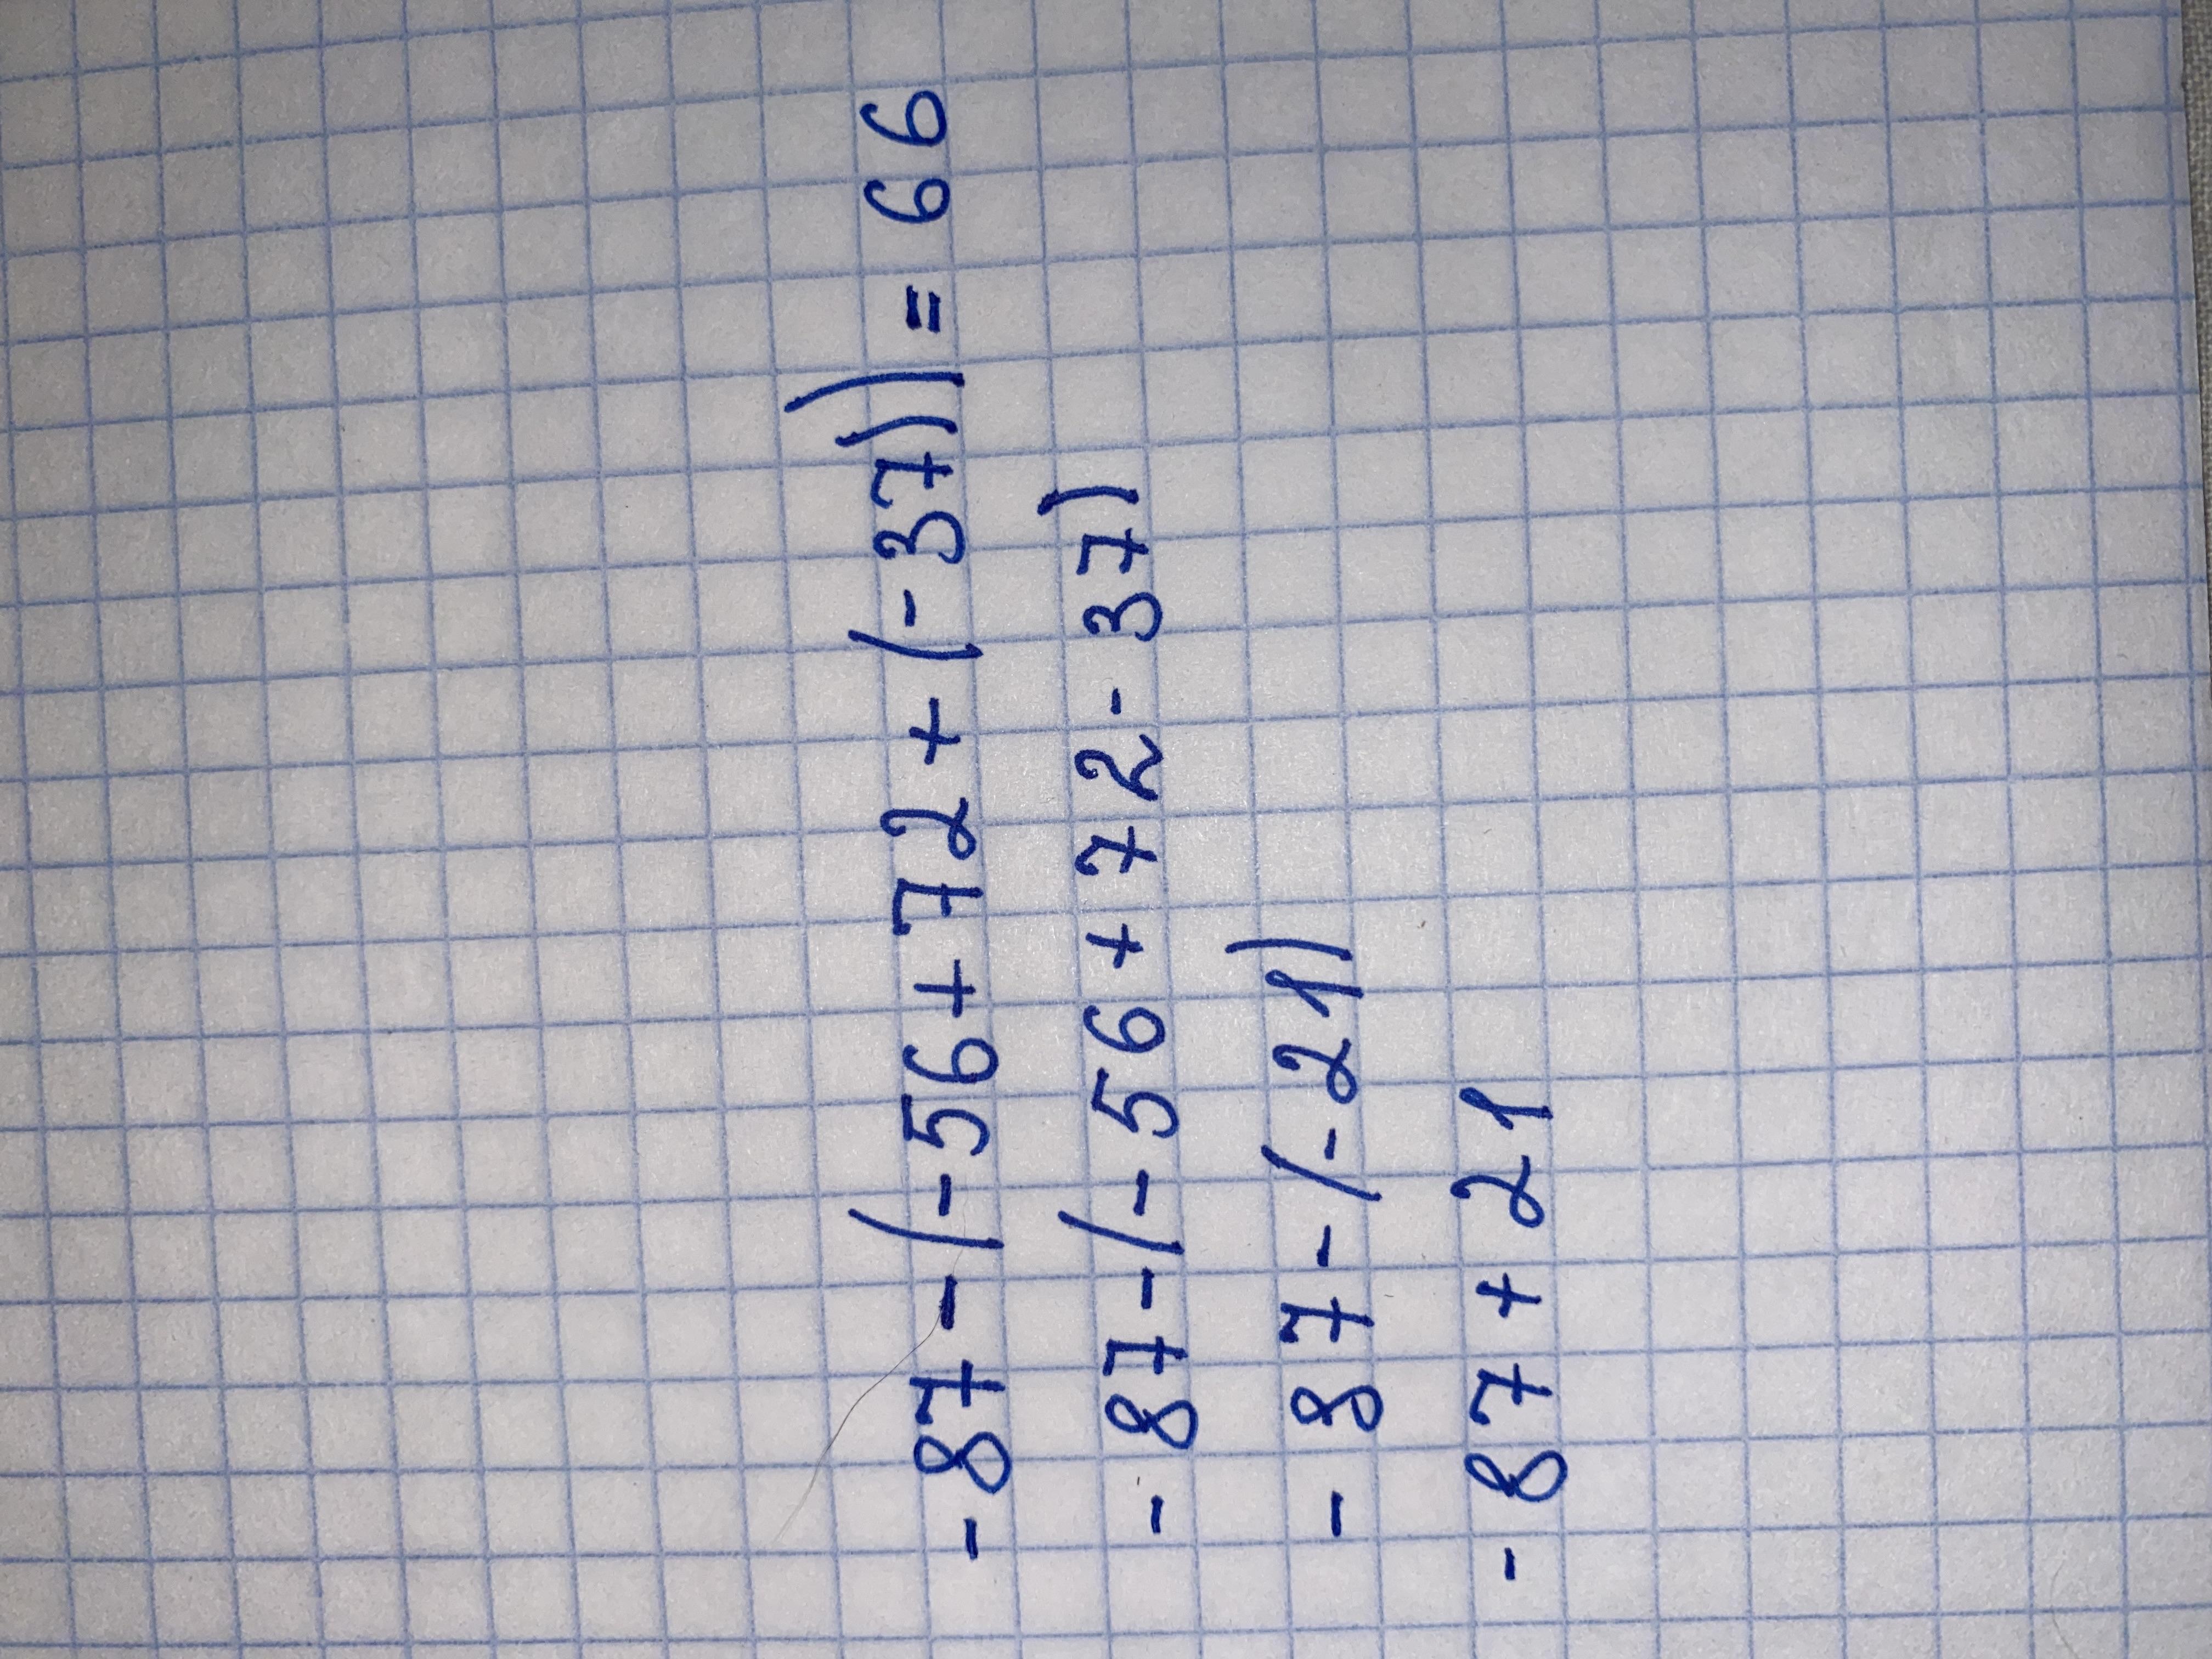 -87-(-56+72+(-37))=66
-87-(-56+72-37)
-87-(-21)
-87+21